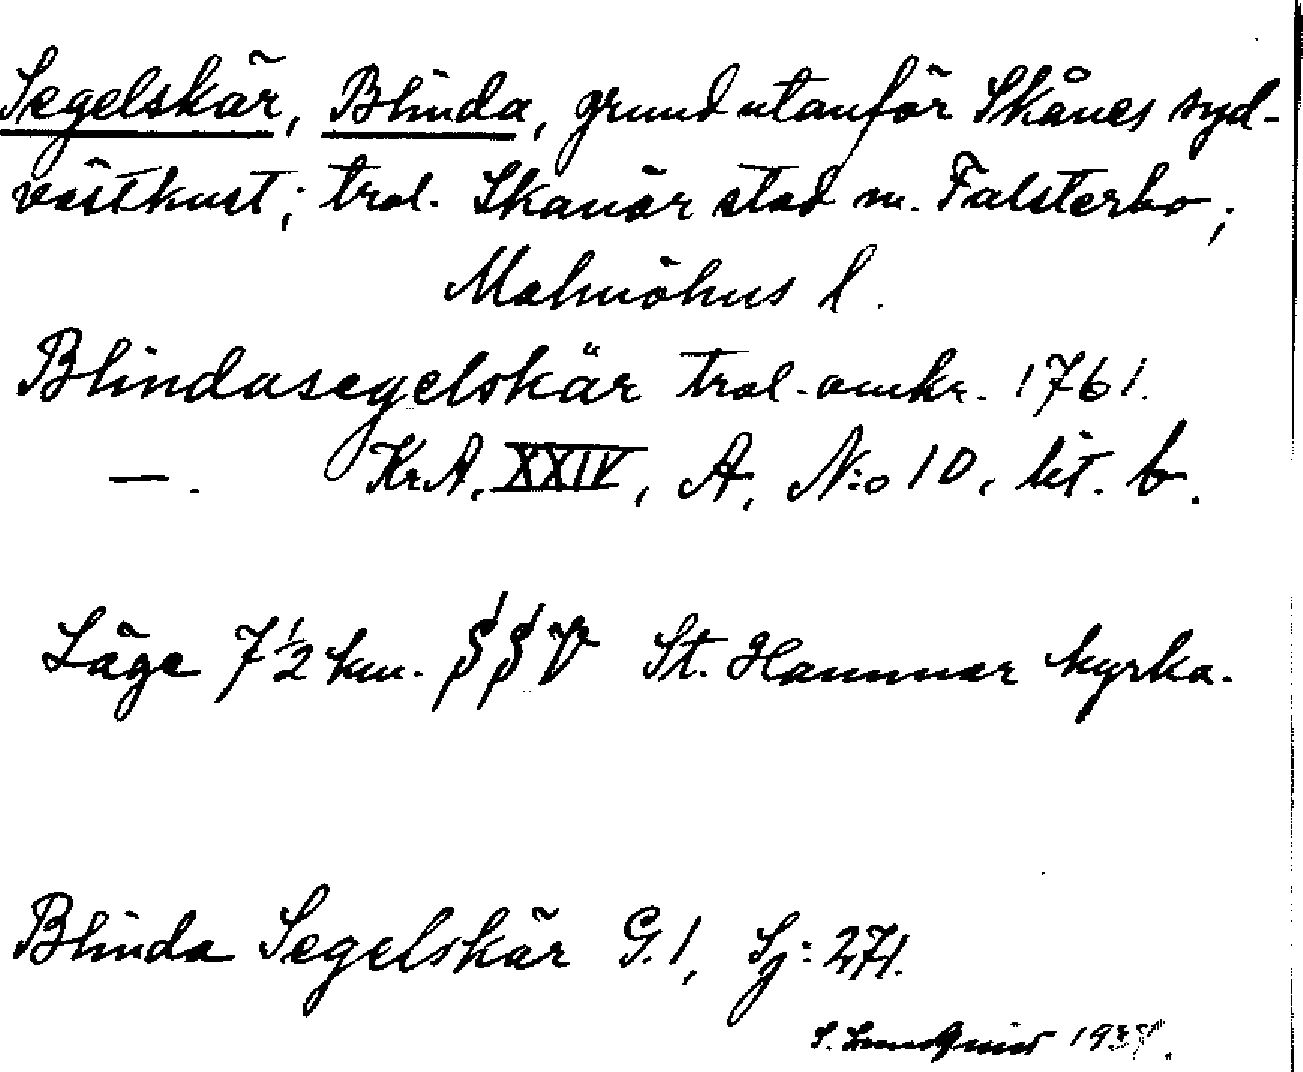 Segelskär, Blinda, grund utanför Skånes syd-
västkust; trol. Skanör stad m. Falsterbo;
Malmöhus l.
Blindasegelskär trol. omkr. 1761.
—. KrA, XXIV, A, N:o 10, lit. b.
Läge 7 1/2 km. SSV St. Hammar kyrka.
Blinda Segelskär G.1, Sj: 271.
S. Lundqvist 193